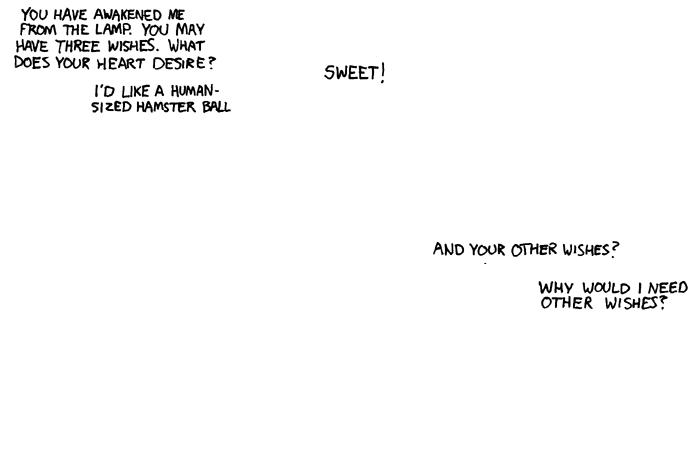 YOU HAVE AWAKENED ME
FROM THE LAMP. YOU MAY
HAVE THREE WISHES. WHAT
DOES YOUR HEART DESIRE?
I'D LIKE A HUMAN-
SIZED HAMSTER BALL
SWEET!
AND YOUR OTHER WISHES?
WHY WOULD I NEED
OTHER WISHES?